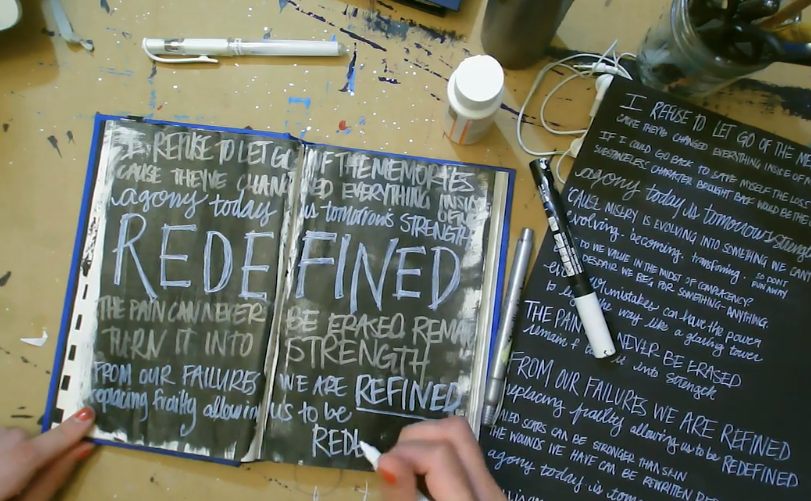 I REFUSE TO LET GO OF THE MEMORIES
CAUSE THEY'VE CHANGED EVERYTHING INSIDE OF ME
agony today is tomorrow's STRENGTH
REDEFINED
THE PAIN CAN NEVER BE ERASED REMA
TURN IT INTO STRENGTH
FROM OUR FAILURES WE ARE REFINED
replacing frailty allowing us to be
REDE
I REFUSE TO LET GO OF THE
CAUSE THEY'VE CHANGED EVERYTHING INSIDE OF
IF I COULD GO BACK TO SAVE MYSELF THE
SUBSTANCELESS CHARACTER BROUGHT BACK WOULD BE
agony today is tomorrow's
CAUSE MISERY IS EVOLVING INTO SOMETHING WE CAN
evolving. becoming. transforming. SO DON'T
RUN AWAY
DO WE VALUE IN THE MIDST OF COMPLACENCY?
DESPAIR WE BEG FOR SOMETHING-ANYTHING.
mistakes can have the power
the way like a glaring tower
THE PAIN NEVER BE ERASED
remain into strength
FROM OUR FAILURES WE ARE REFINED
replacing frailty allowing us to be REDEFINED
SCARS CAN BE STRONGER THAN SKIN
THE WOUNDS WE HAVE CAN BE REWRITTEN
agony today is